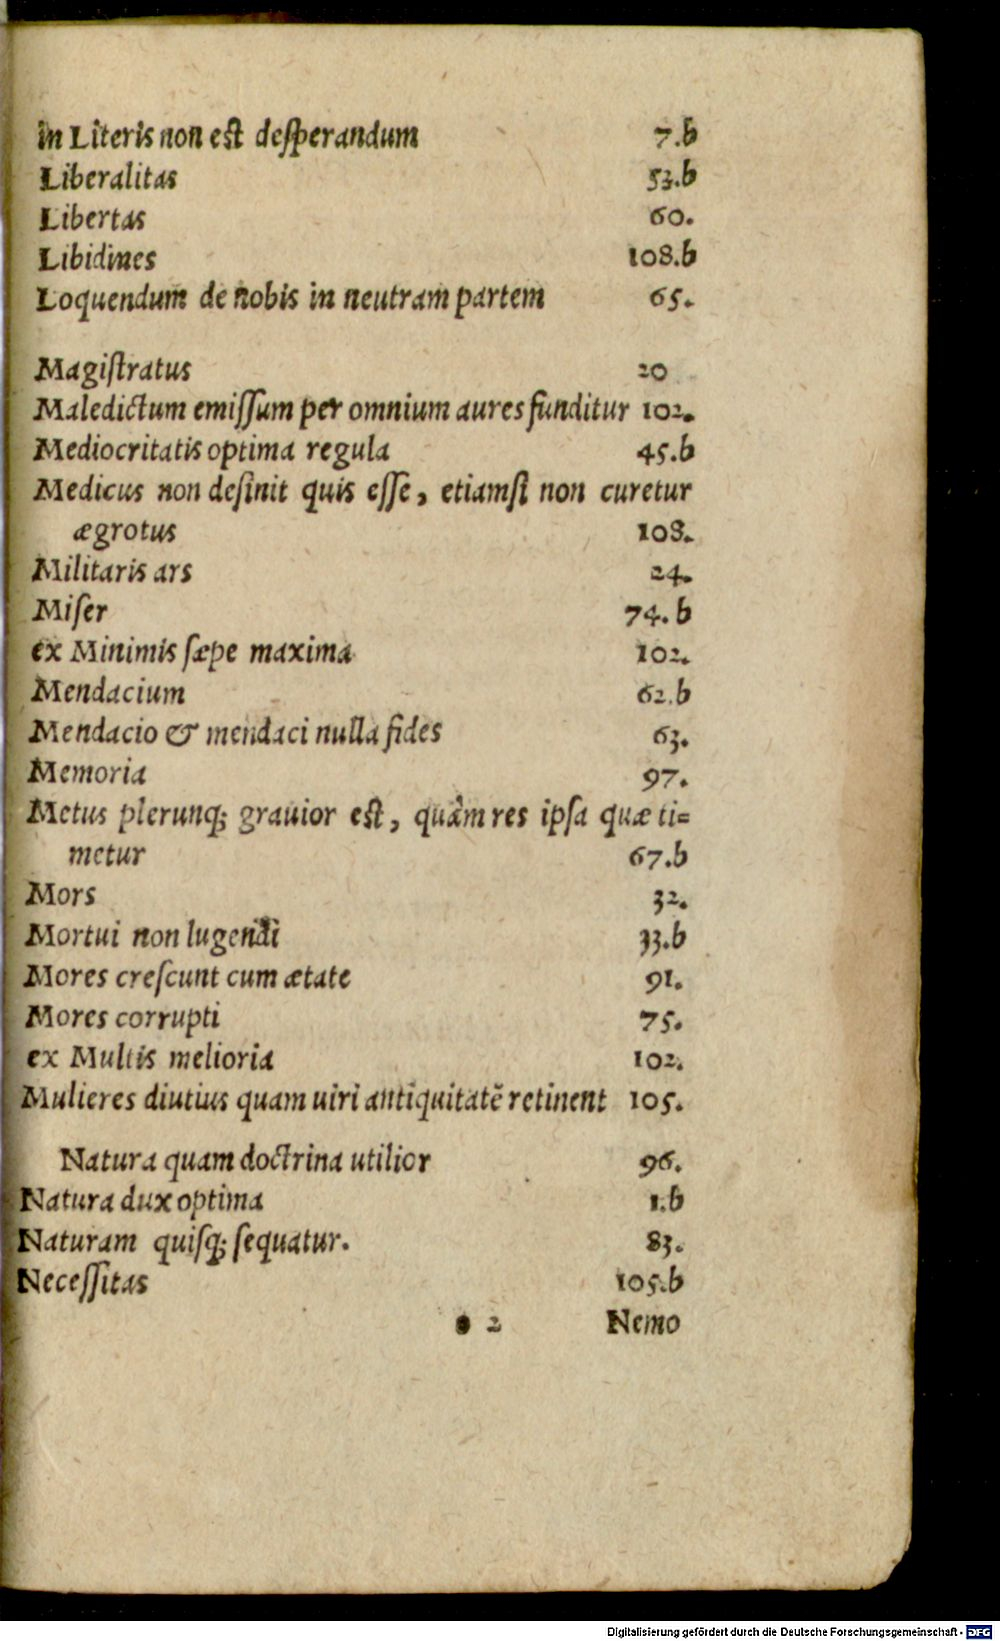 in Literis non est desperandum 7.b
Liberalitas 53.b
Libertas 60.
Libidines 108.b
Loquendum de nobis in neutram partem 65.
Magiſtratus 20
Maledictum emiſſum per omnium aures funditur 102.
Mediocritatis optima regula 45.b
Medicus non deſinit quis eſſe, etiamſi non curetur
ægrotus 108.
Militaris ars 24.
Miſer 74. b
ex Minimis ſæpe maxima 102.
Mendacium 62.b
Mendacio & mendaci nulla fides 63.
Memoria 97.
Metus plerunq; grauior est, quàm res ipſa quæ ti=
metur 67.b
Mors 32.
Mortui non lugendi 33.b
Mores creſcunt cum ætate 91.
Mores corrupti 75.
ex Multis melioria 102.
Mulieres diutius quam uiri antiquitatē retinent 105.
Natura quam doctrina utilior 96.
Natura dux optima 1.b
Naturam quiſq; ſequatur. 83.
Neceſſitas 105.b
2 Nemo
Digitalisierung gefördert durch die Deutsche Forschungsgemeinschaft - DFG